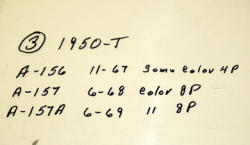 ③ 1950-T
A-156 11-67 Some color 4P
A-157 6-68 color 8P
A-157A 6-69 11 8P